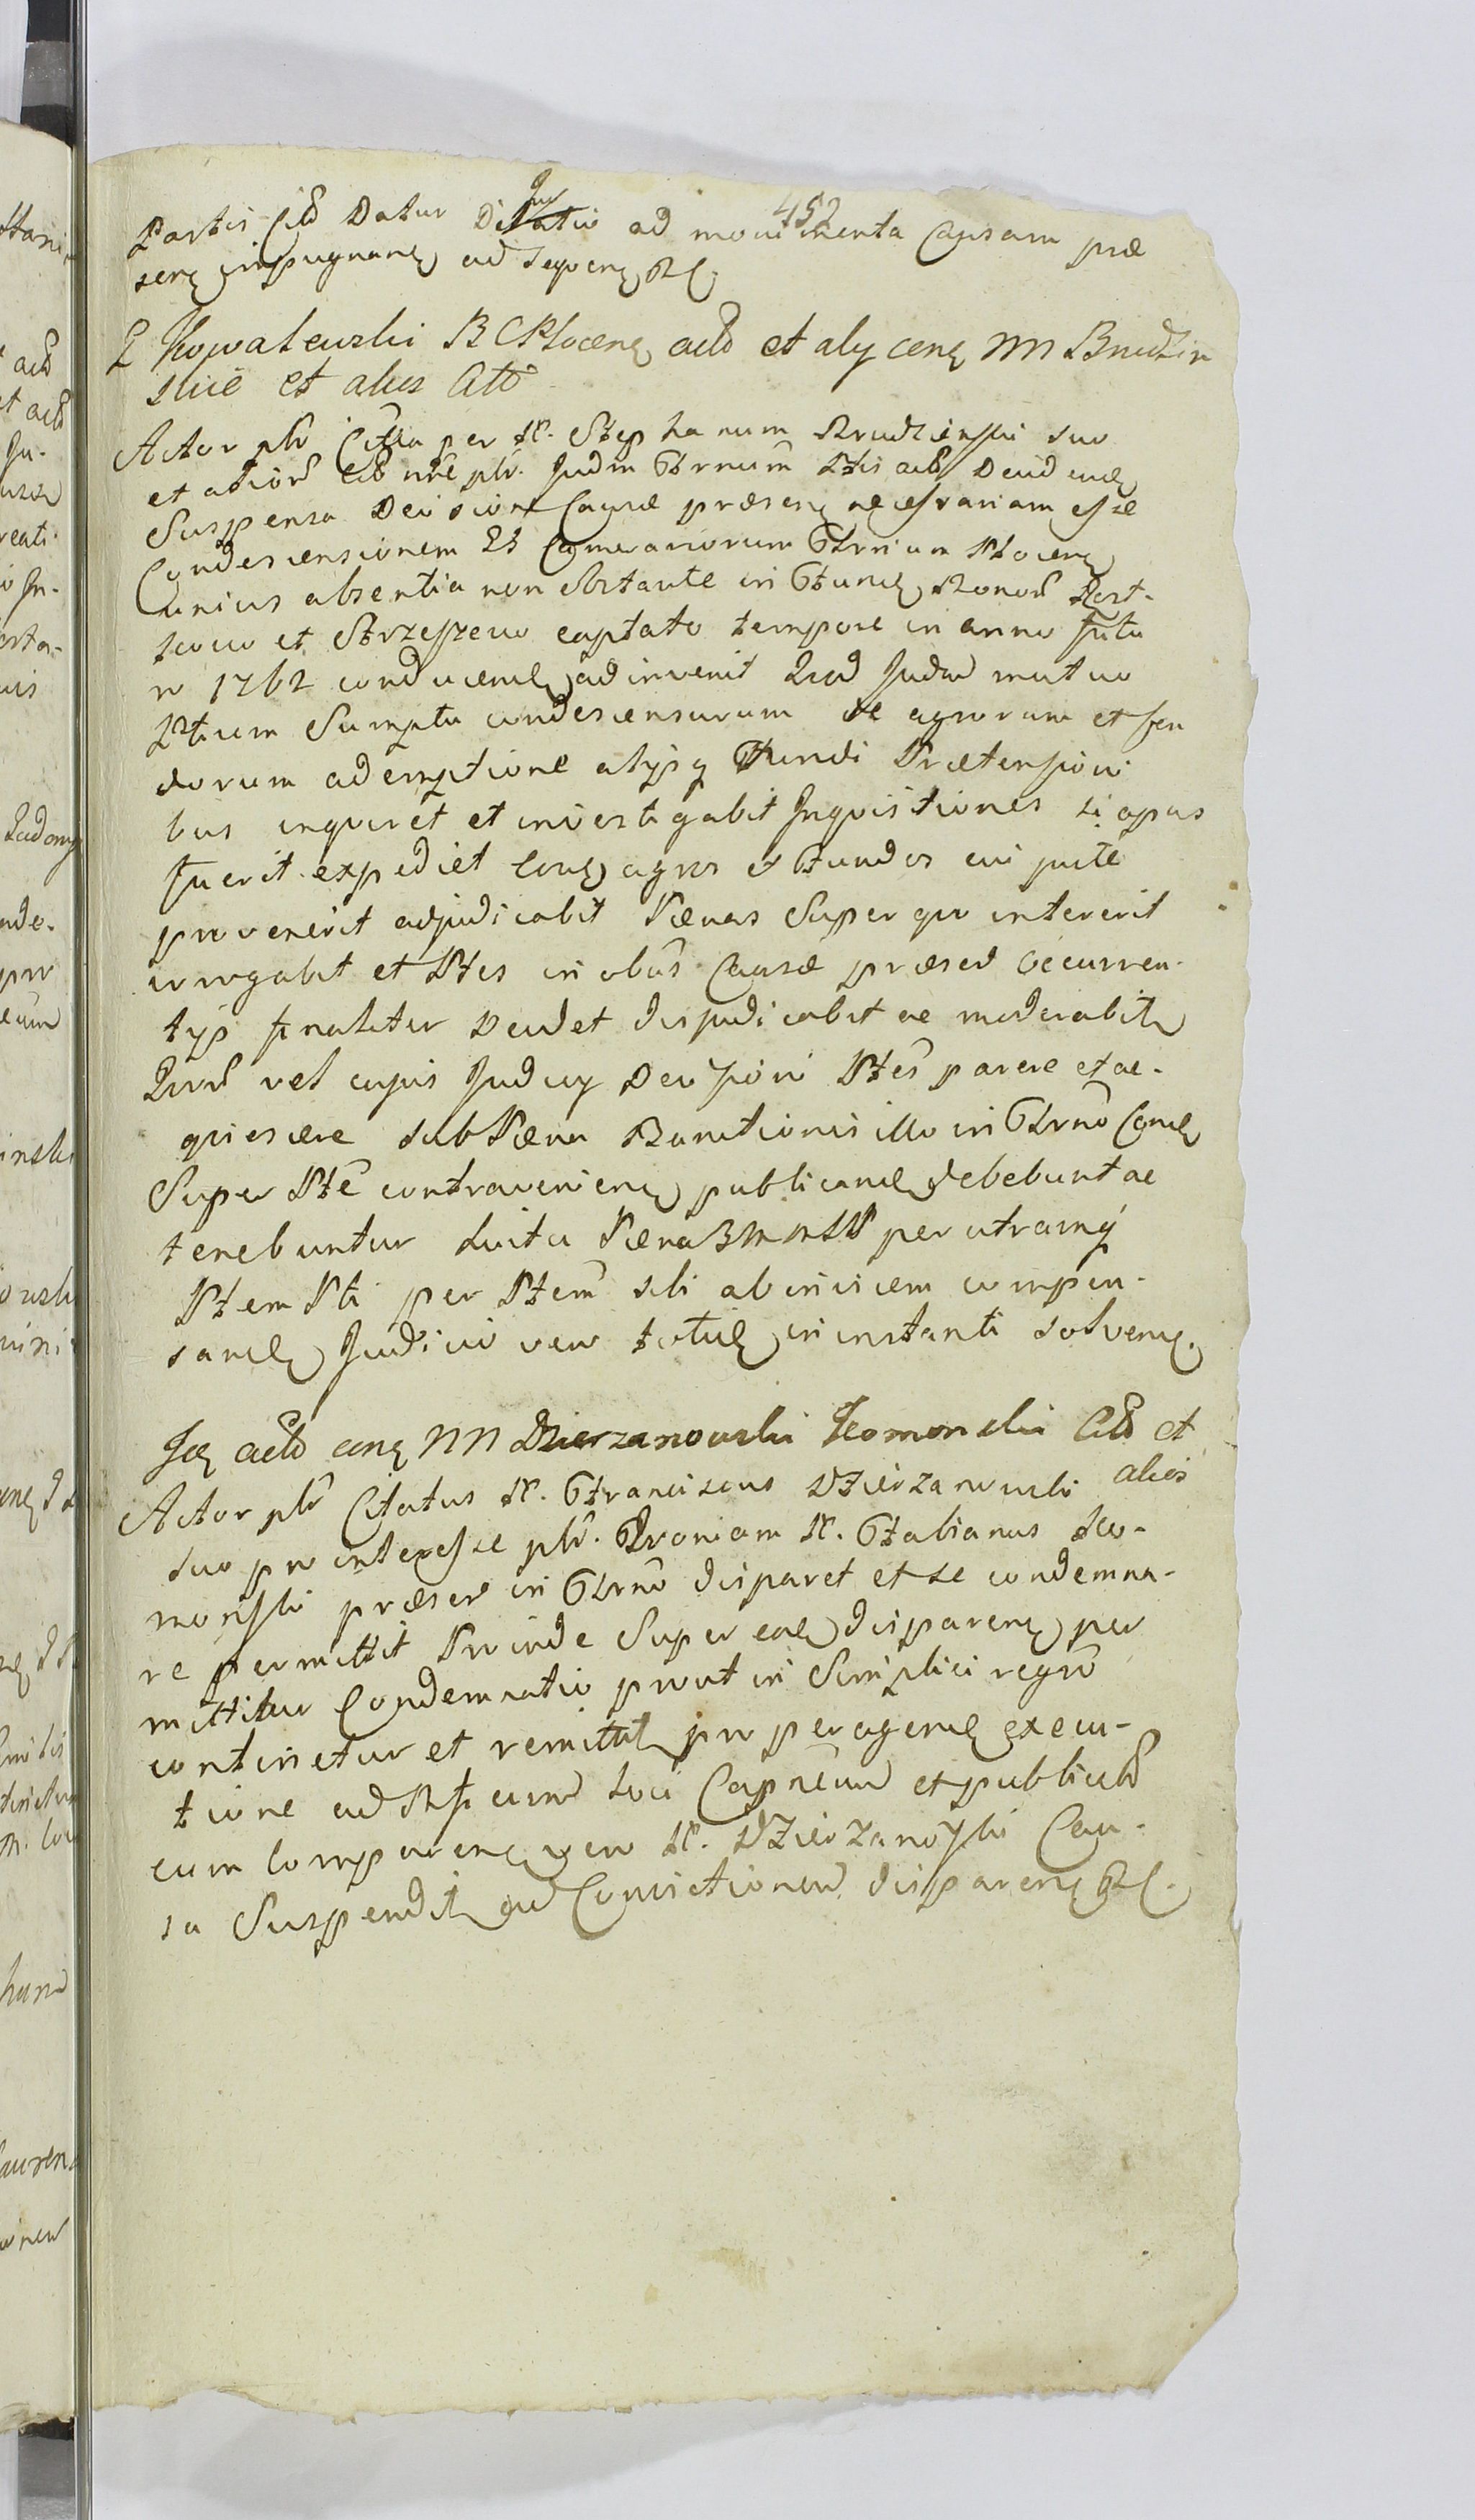 452
Partis Citt Datur Dilatio ad movimenta Causam præ
senę impugnanę ad sequenę Rl
G Kowalewski B C Plocenę actt et alij cenę MM Brudzin
skie et alios Att
Actor plr Citta per N. Stephanum Brudzinski suo
et alior noie plr. Judm Ttrnum Ptis act Decidendę
Suspensa Decisione Causæ præsenę necessariam esse
Condescensionem Camerariorum Ttrrium Plocenę
unius absentia non obstante in Fundę Bonor
et Strzeszewo captato tempore in anno futu
ro 1762 conducendę adinvenit Quod Judm mutuo
Ptium Sumptu condescensurum de agrorum et fun
dorum ademptione alijsq Fundi Prætensioni
bus inquiret et investigabit Inquisitiones si opus
fuerit expediet eosdę agros et Fundos cui juste
provenerit adjudicabit Pænas Super quo intererit
irrogabit et Ptes in obus Causæ præsen occurren-
tijs finaliter Decidet dijudicabit ac moderabitę
Quor vel cujus Judicij Decisioni Ptes parere et ac-
quiescere sub Pæna Banitionis illo in Ttrno Condę
Super Pte contravenienę publicandę debebunt ac
tenebuntur Luita Pæna per utramq
Ptem Pti per Ptem sibi ab invicem compen-
sandę Judicio vero totidę in instanti solvenę.
Idę actt cenę MM Dzierzanowski Komonski Citt et
alios
Actor plr Citatus N. Franciscus Dzierzanowski
suo pro interesse plr. Quoniam N. Fabianus Ko-
monski præsen in Ttrno disparet et se condemna-
re permittit Proinde Super eodę disparenę per
mittitur Condemnatio prout in Simplici regro
continetur et remittitę pro peragendę execu-
tione ad Offium loci Capneum et publicatt
cum Comparenę vero N. Dzierzanowski Cau-
sa Suspenditę ad Convictionem disparenę Rl.